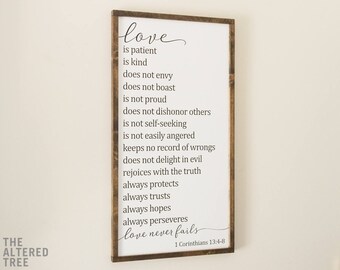 love
is patient
is kind
does not envy
does not boast
is not proud
does not dishonor others
is not self-seeking
is not easily angered
keeps no record of wrongs
does not delight in evil
rejoices with the truth
always protects
always trusts
always hopes
always perseveres
love never fails
1 Corinthians 13:4-8
THE
ALTERED
TREE